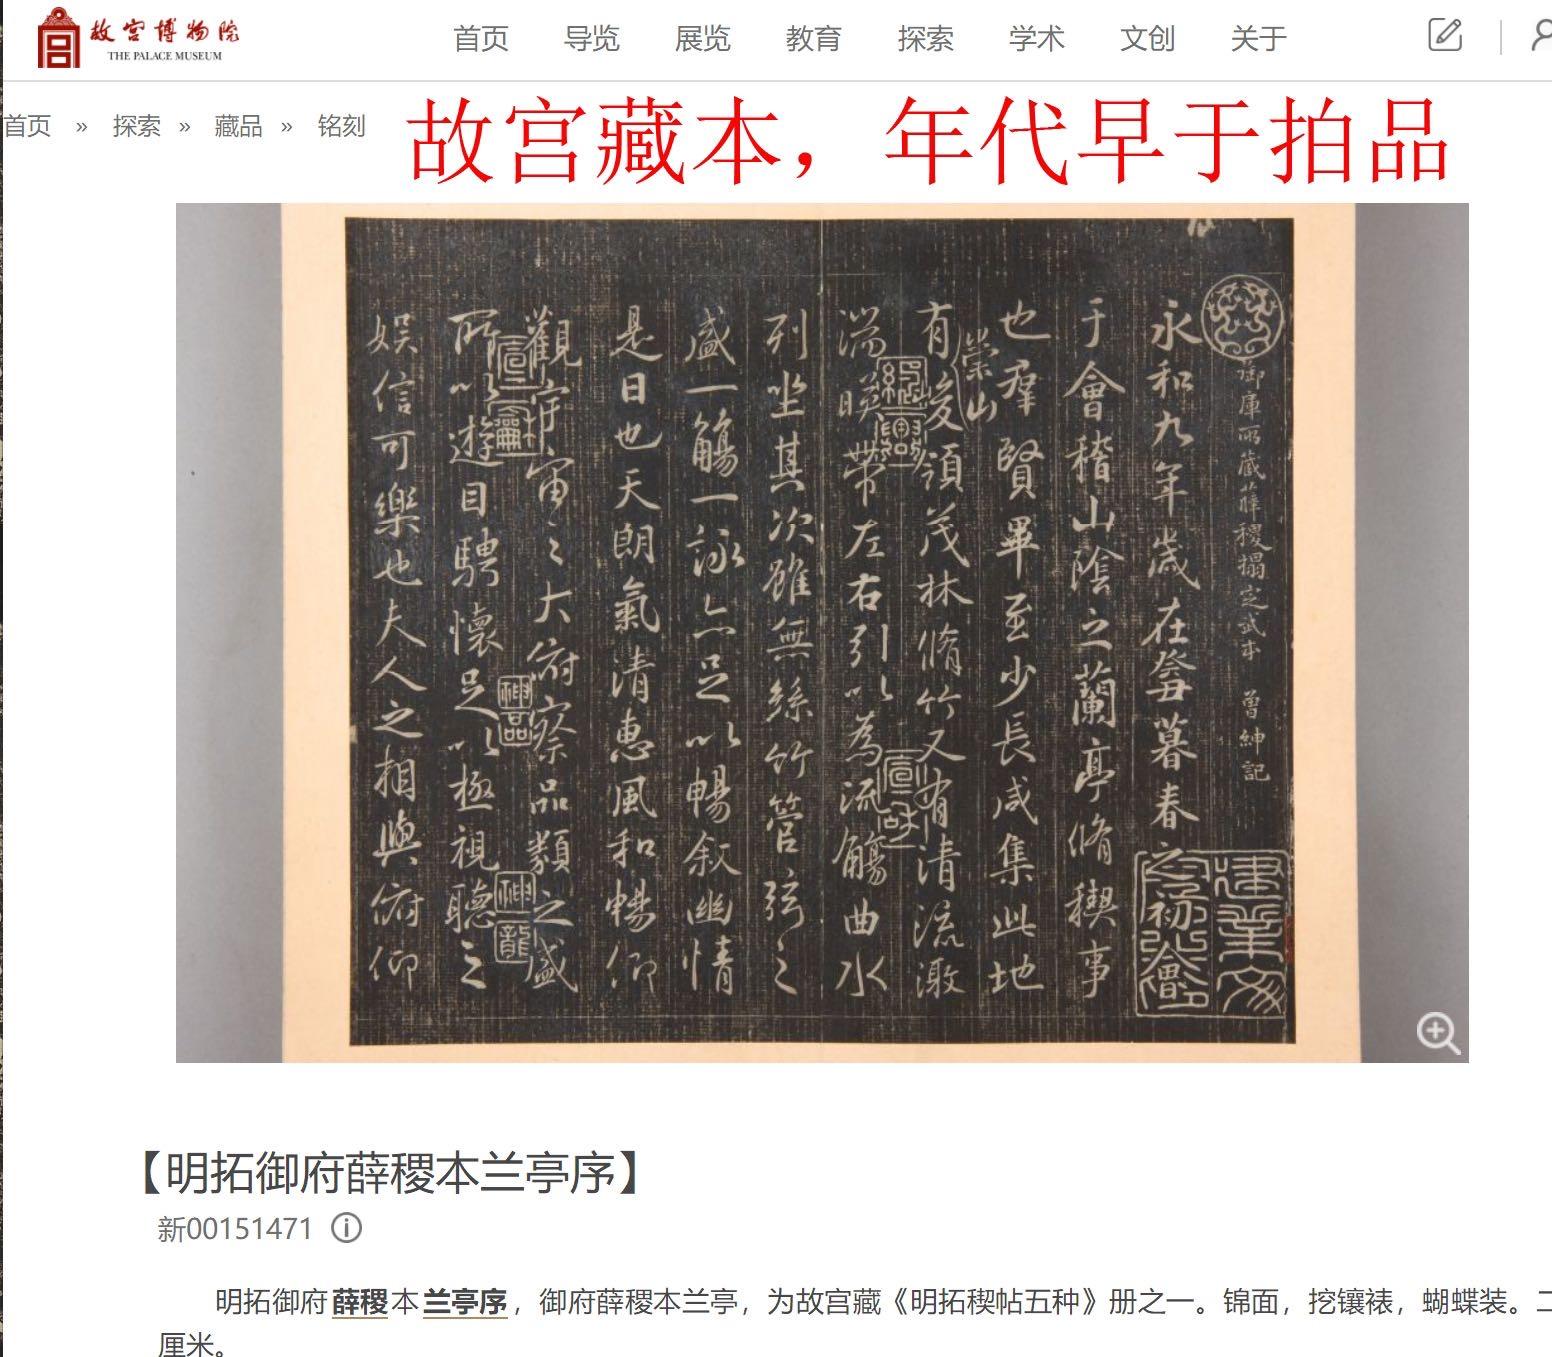 故宫博物院
THE PALACE MUSEUM
首页 导览 展览 教育 探索 学术 文创 关于
首页 » 探索 » 藏品 » 铭刻
故宫藏本，年代早于拍品
御庫所藏薛稷搨定武本 曾紳記
永和九年歲在癸丑暮春之初會
于會稽山陰之蘭亭脩稧事
也羣賢畢至少長咸集此地
崇山
有峻領茂林脩竹又有清流激
湍暎帶左右引以為流觴曲水
列坐其次雖無絲竹管弦之
盛一觴一詠亦足以暢敘幽情
是日也天朗氣清惠風和暢仰
觀宇宙之大俯察品類之盛
所以遊目騁懷足以極視聽之
娛信可樂也夫人之相與俯仰
紹興
宣和
神品
神龍
【明拓御府薛稷本兰亭序】
新00151471
明拓御府薛稷本兰亭序，御府薛稷本兰亭，为故宫藏《明拓稧帖五种》册之一。锦面，挖镶裱，蝴蝶装。二
厘米。